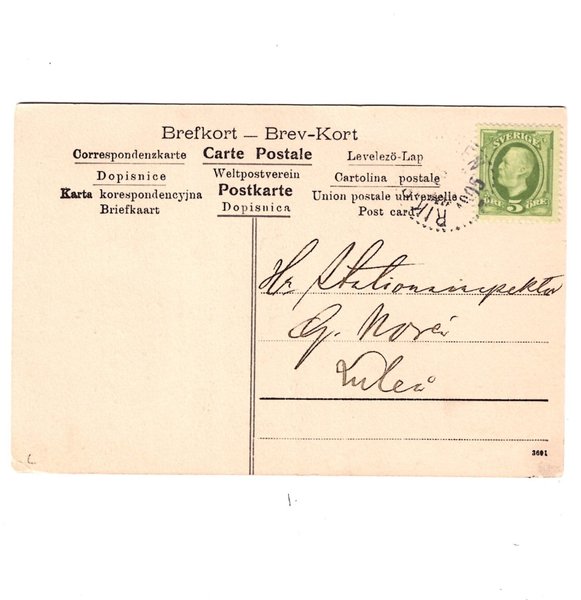 Brefkort — Brev-Kort
Correspondenzkarte Carte Postale Levelezö-Lap
Dopisnice Weltpostverein Cartolina postale
Karta korespondencyjna Postkarte Union postale universelle
Briefkaart Dopisnica Post card
SVERIGE
5
ÖRE ÖRE
Hr Stationsinspektor
G. Norén
Luleå
3691